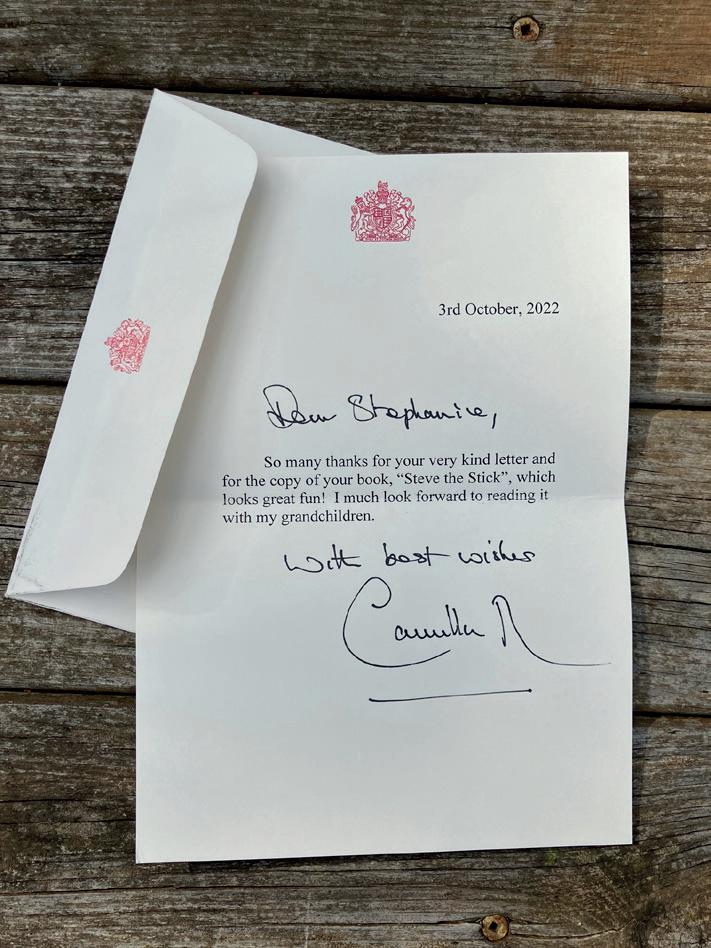 3rd October, 2022
Dear Stephanie,
So many thanks for your very kind letter and
for the copy of your book, “Steve the Stick”, which
looks great fun!  I much look forward to reading it
with my grandchildren.
With best wishes
Camilla R